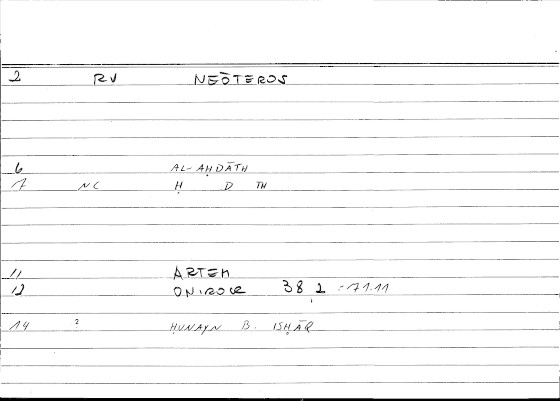 2 RV NEŌTEROS
6 AL-AḤDĀTH
7 NC Ḥ D TH
11 ARTEM
12 ONIROCR 38 1 = 71.11
14 ? ḤUNAYN B. ISḤĀQ